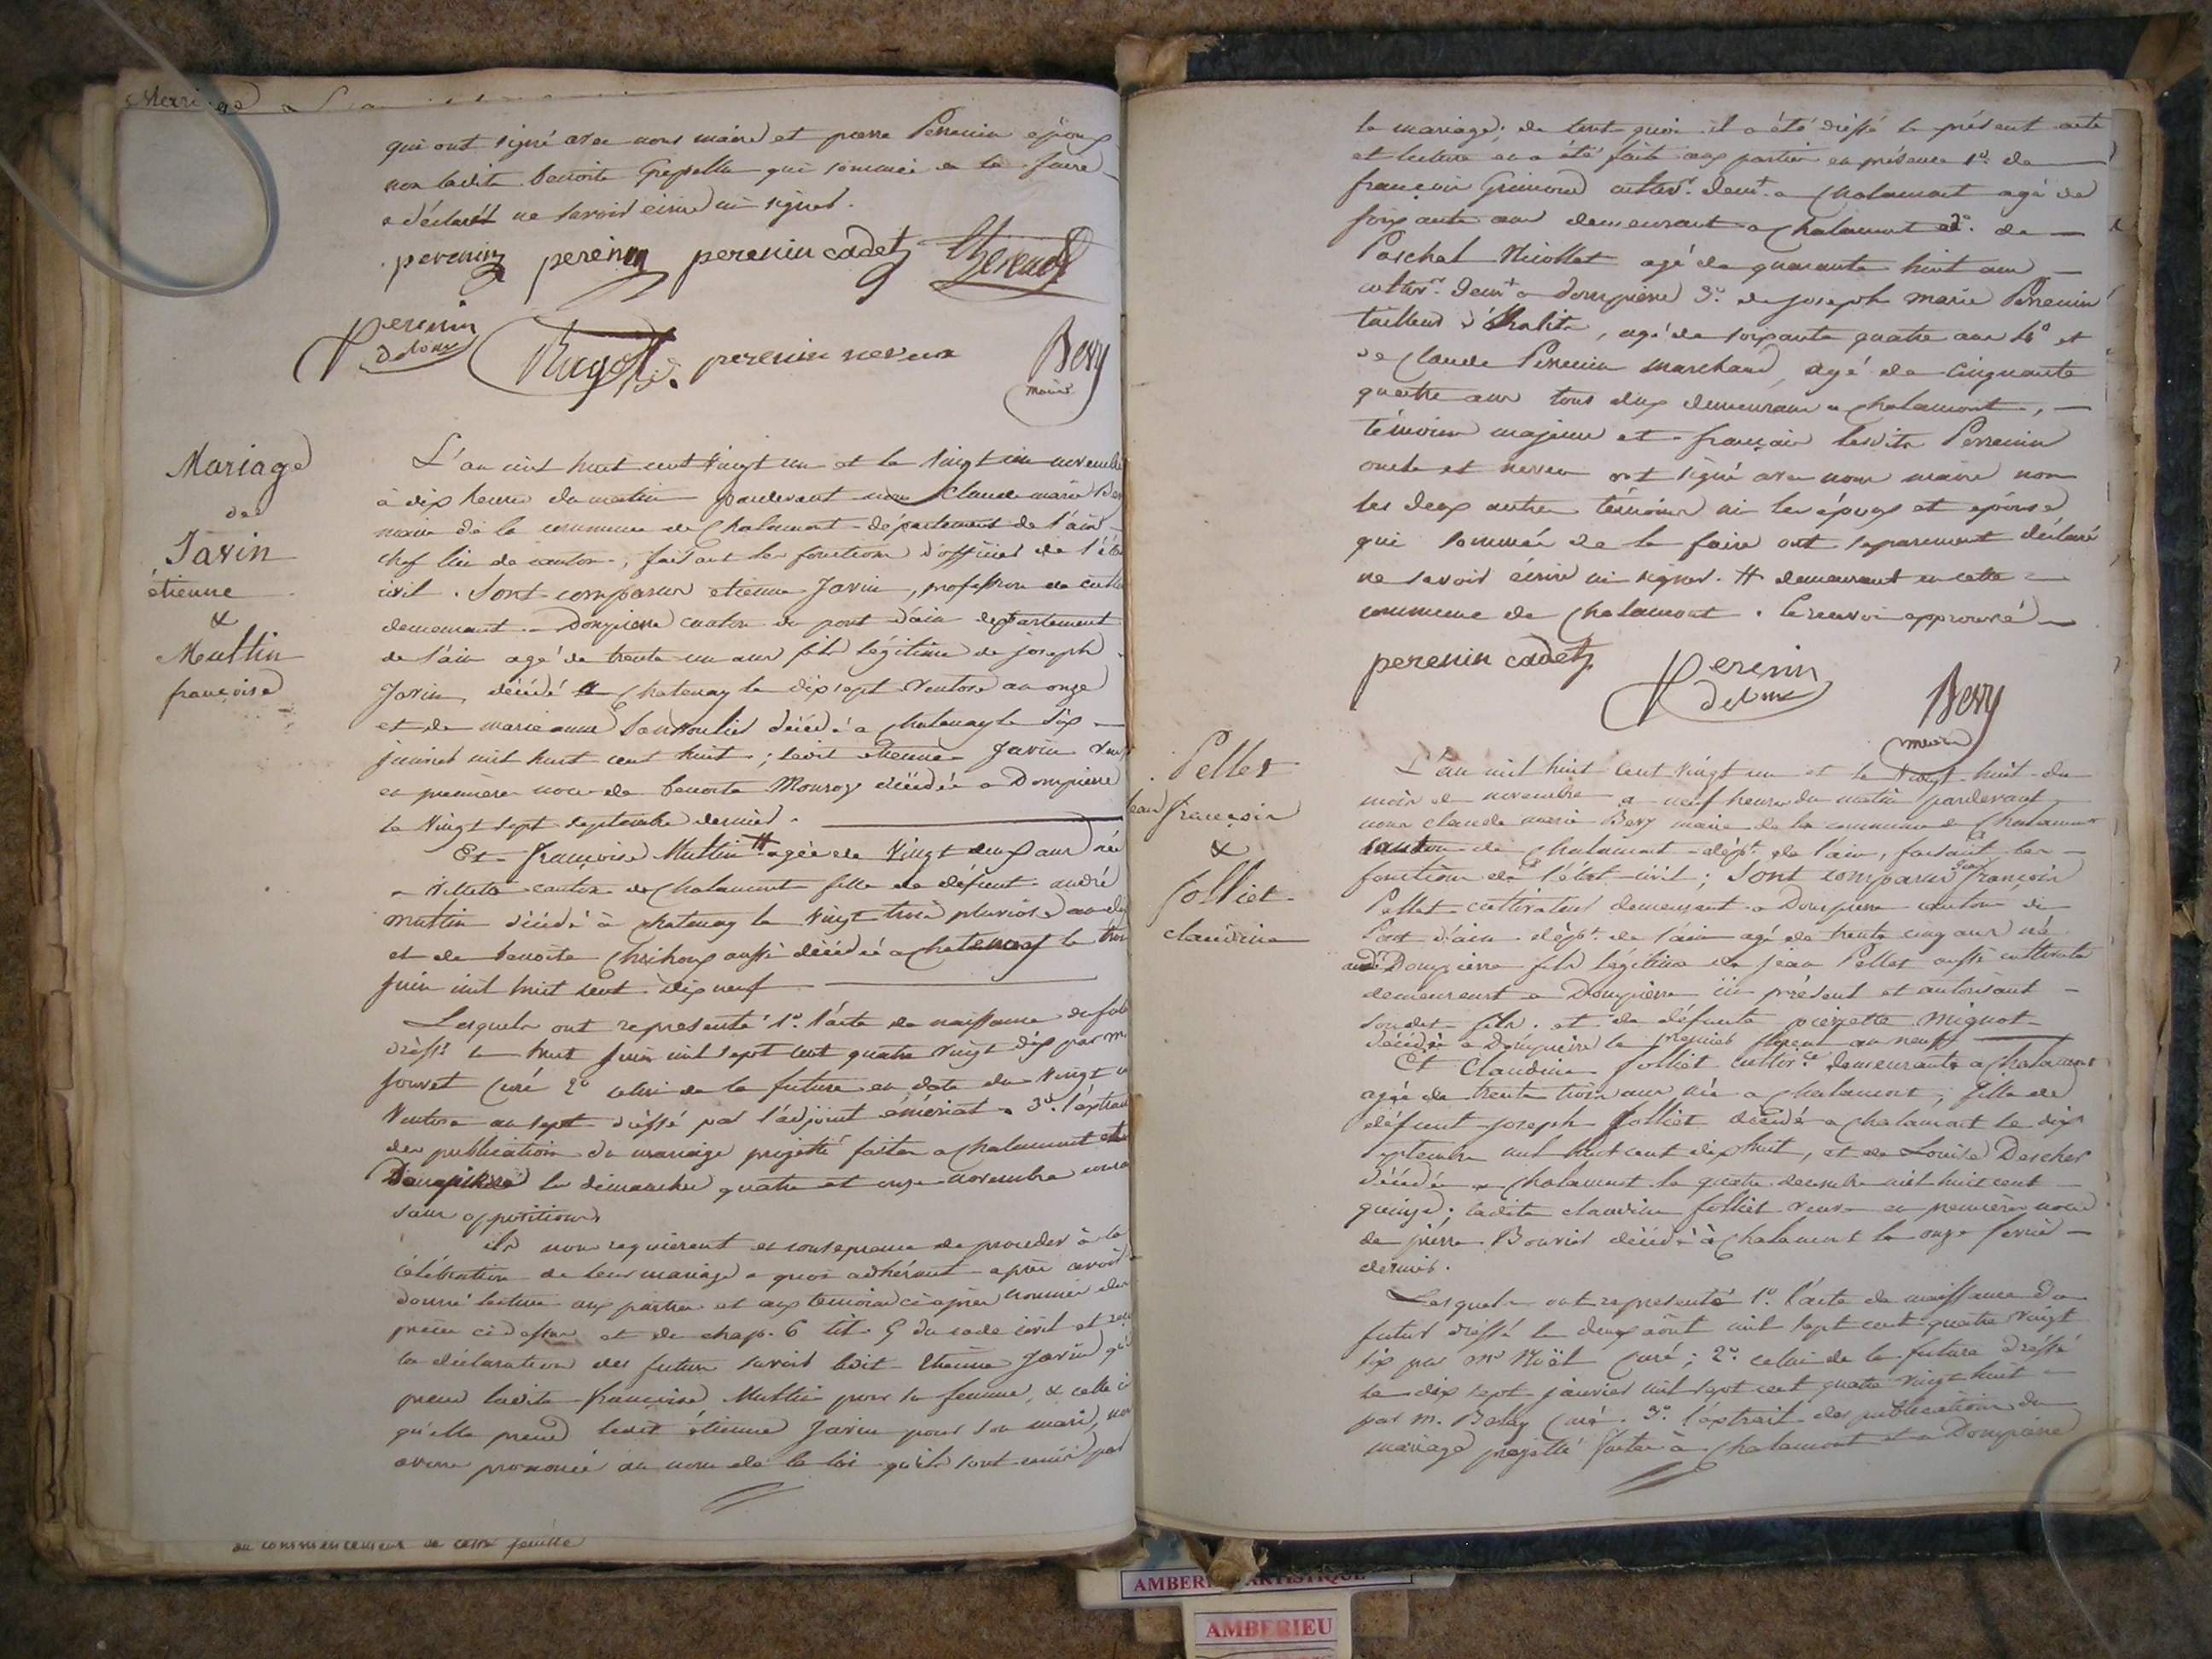 Mariage
qui ont signé avec nous maire et pierre Perrenin époux
non ladite benoite qui sommée de le faire
a déclaré ne savoir écrire ni signer.
perenin perenin perenin cadet
perenin
perenin neveux Bevy
maire
Mariage
de
Javin
étienne
&
Muttin
françoise
L'an mil huit cent vingt un et le vingt un novembre
à dix heures du matin pardevant nous Claude marie Bevy
maire de la commune de Chalamont département de l'ain
chef lieu de canton, faisant les fonctions d'officier de l'état
civil. Sont comparus etienne Javin, profession de
demeurant a Dompierre canton du pont d'ain departement
de l'ain agé de trente un ans fils légitime de joseph
Javin, décédé a Chatenay le dix sept ventose an onze
et de marie anne décédé a Chatenay le six
janvier mil huit cent huit; ledit etienne Javin veuf
en premières noces de benoite décédée a Dompierre
le vingt sept septembre dernier.
Et françoise Muttin agée de vingt deux ans née
a Villette canton de Chalamont fille de défunt andré
muttin décédé à chatenay le vingt trois pluviôse an
et de benoite aussi décédée a chatenay le
juin mil huit cent dix neuf
Lesquels ont representé 1o. l'acte de naissance du futur
dressé le huit juin mil sept cent quatre vingt dix par mr
Jouvet curé 2o celui de la future en date du vingt
ventose an sept dressé par l'adjoint 3o. l'extrait
des publications du mariage projetté faites a Chalamont et
Dompierre les dimanches quatre et onze novembre
sans oppositions
ils nous requierent en consequence de proceder à la
célébration de leur mariage a quoi adhérant après avoir
donné lecture aux parties et aux temoins ci après nommés des
pièces ci dessus et du chap. 6 tit. 5 du code civil et reçu
la déclaration des futurs savoir ledit Etienne Javin qu'il
prend ladite françoise Muttin pour sa femme, & celle ci
qu'elle prend ledit étienne Javin pour son mari, nous
avons prononcé au nom de la loi qu'ils sont unis par
au commencement de cette feuille
le mariage; de tout quoi il a été dressé le présent acte
et lecture en a été faite aux parties en présence 1o. de
françois Grimoud cultivr. demt. a Chalamont agé de
soixante ans demeurant a Chalamont 2o. de
Paschal Nicollet agé de quarante huit ans
cultivr. demt a dompierre 3o. de joseph marie Perrenin
tailleur d'habits, agé de soixante quatre ans 4o et
de Claude Perrenin marchand, agé de cinquante
quatre ans tous deux demeurans a chalamont,
témoins majeurs et français lesdits Perrenin
oncle et neveu ont signé avec nous maire non
les deux autres témoins ni les époux et epouse
qui sommés de le faire ont separement déclaré
ne savoir écrire ni signer. # demeurant en cette
commune de Chalamont. le renvoi approuvé
perenin cadet perenin
Bevy
maire
Pellet
jean françois
&
Jolliet
claudine
L'an mil huit cent vingt un et le vingt huit du
mois de novembre a neuf heures du matin pardevant
nous claude marie Bevy maire de la commune de Chalamont
canton de chalamont dépt. de l'ain, faisant les
fonctions de l'état civil; Sont comparus jean françois
Pellet cultivateur demeurant a Dompierre canton de
Pont d'ain dépt. de l'ain agé de trente cinq ans né
audt Dompierre fils légitime de jean Pellet aussi cultivateur
demeurant a Dompierre ici présent et autorisant
sondit fils. et de défunte pierrette mignot
décédée a Dompierre le premier an neuf
Et Claudine Jolliet cultivce demeurante a chalamont
agée de trente trois ans née a chalamont, fille de
défunt joseph Jolliet décédé a chalamont le dix
septembre mil huit cent dix huit, et de Louise Descher
décédée a Chalamont le quatre decembre mil huit cent
quinze; ladite claudine Jolliet veuve en premières noces
de pierre Bouvier décédé à Chalamont le onze fevrier
dernier.
Lesquels ont representé 1o. l'acte de naissance du
futur dressé le deux août mil sept cent quatre vingt
six par mr Noël curé; 2o. celui de la future dréssé
le dix sept janvier mil sept cent quatre vingt huit
par m. Balay curé. 3o. l'extrait des publications du
mariage projetté faites à Chalamont et a Dompierre
AMBERIEU